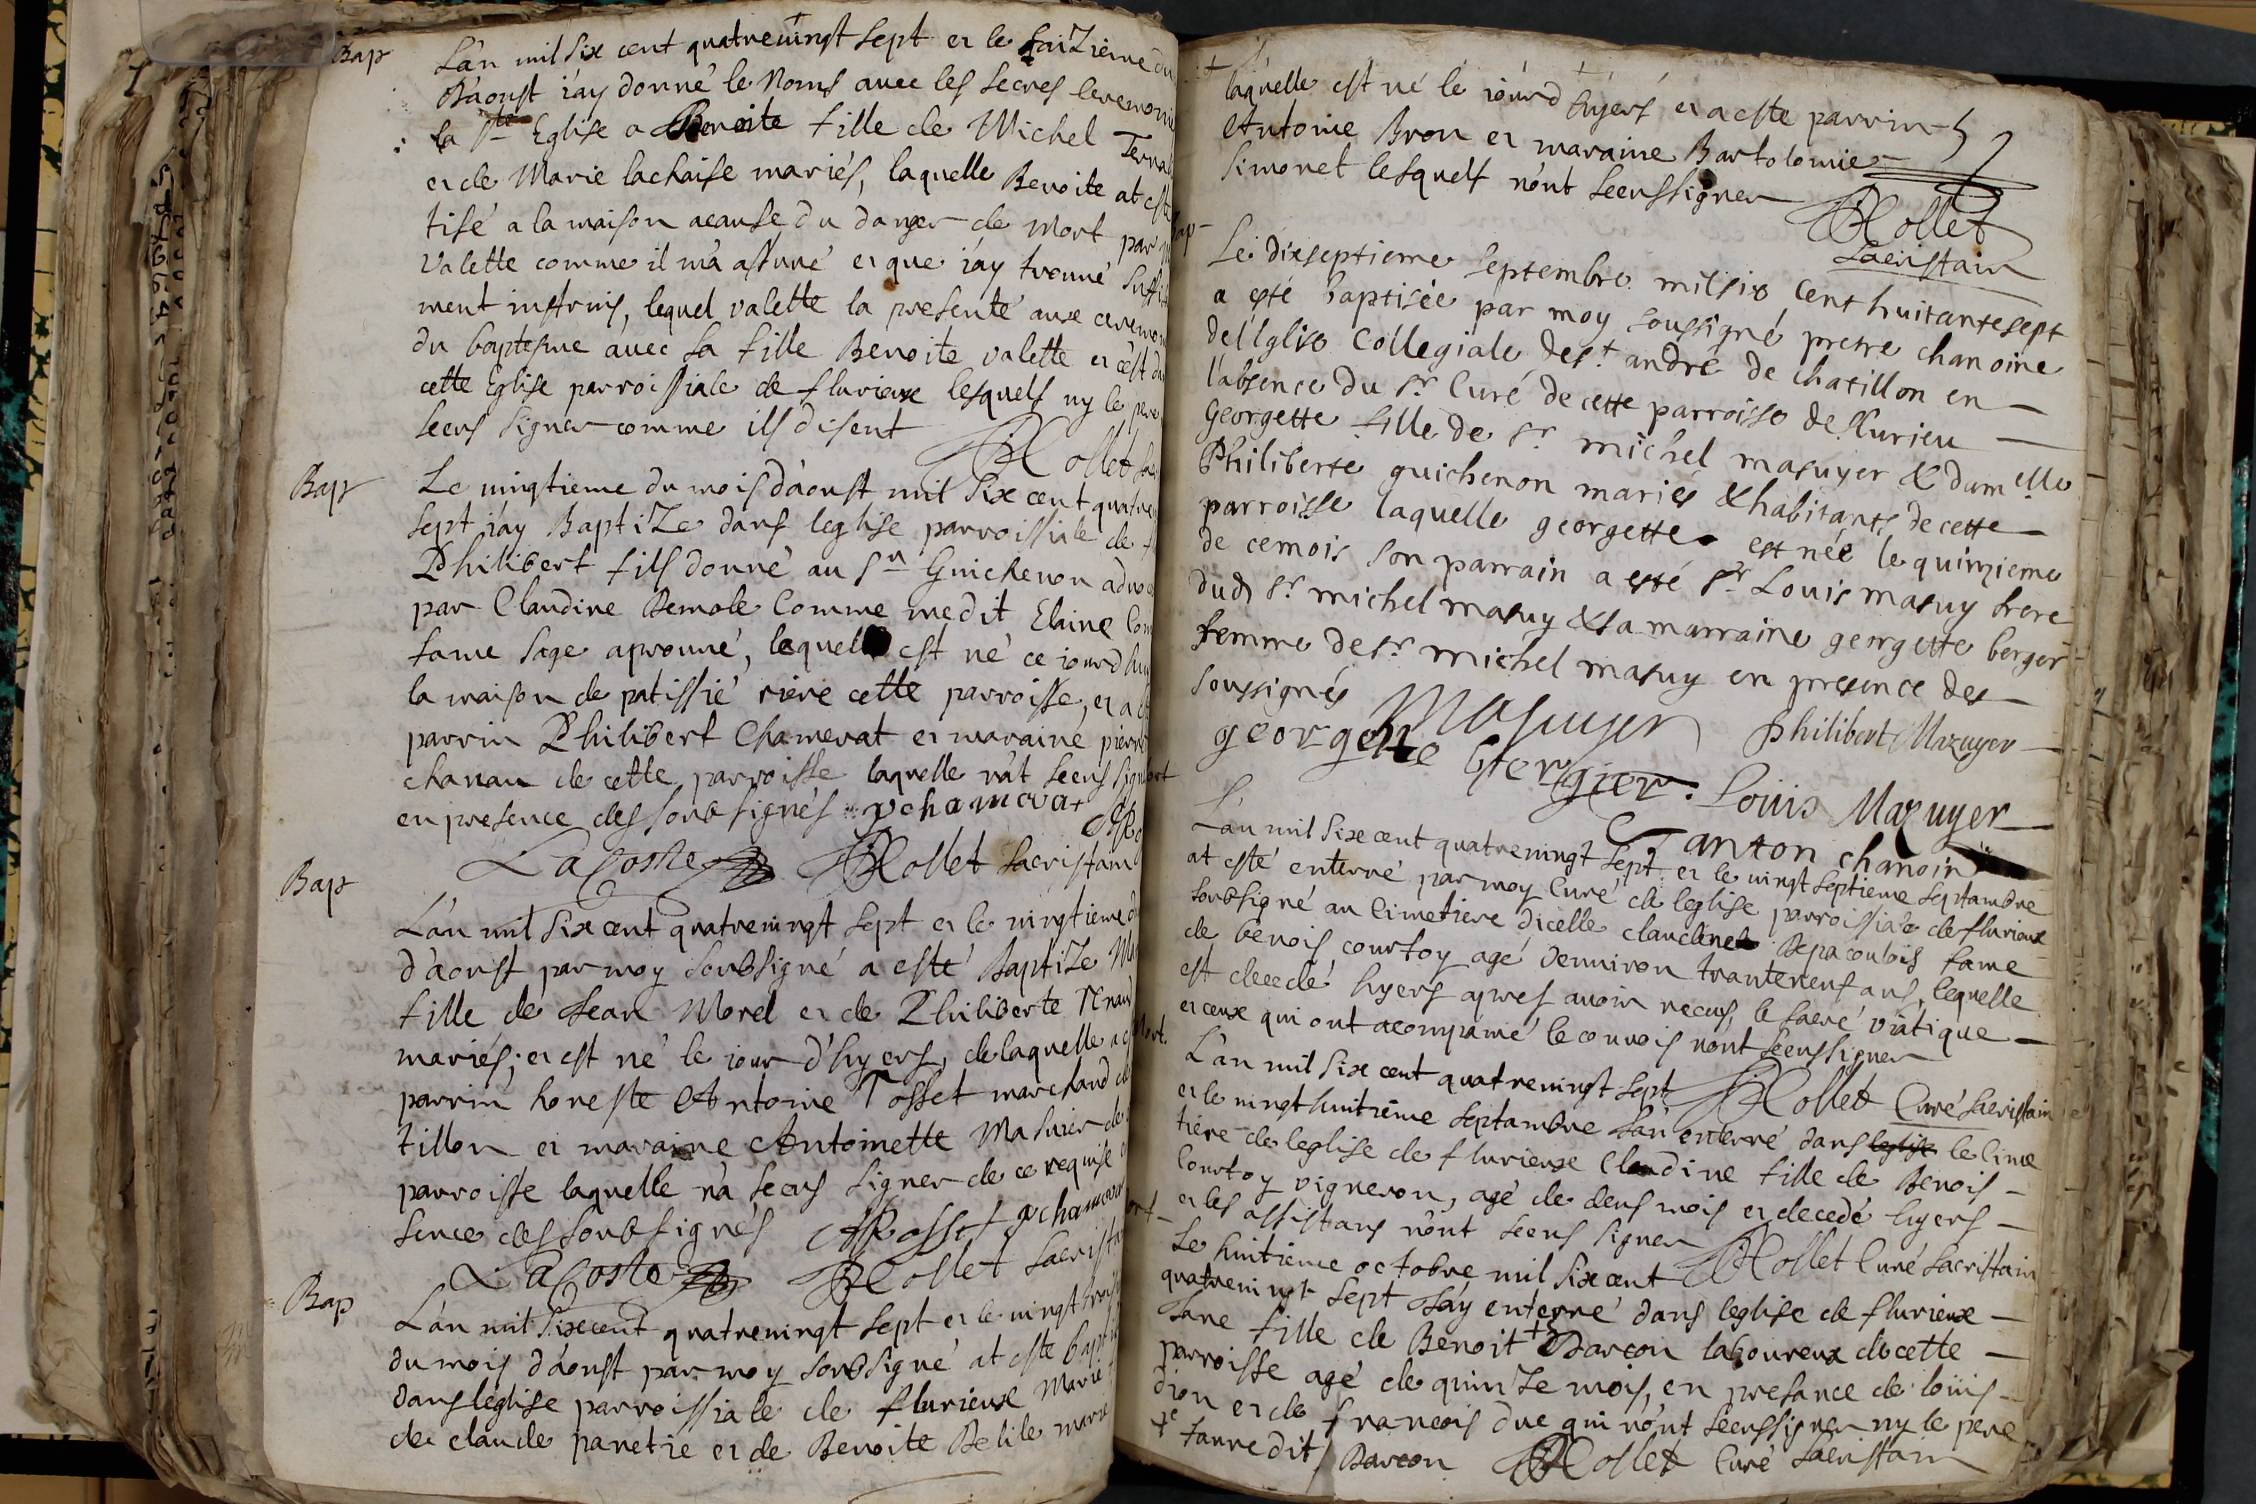 Bap
L'an mil six cent quatrevingt sept et le saizieme du
d'aoust i'ay donné le Noms avec les secres ceremonie
la Ste Eglise a Benoite fille de Michel Terra
et de Marie lachaise mariés, laquelle Benoite at esté
tisé a la maison acause du danger de mort par
valette comme il m'a assuré et que i'ay trouué suffi
ment instruis, lequel valette la presenté aux ceremon
du baptesme avec sa fille Benoite valette et c'est da
cette Eglise parroissiale de flurieux lesquels ny le pere
sceus signer comme ils disent
Rollet sac
Bap
Le vingtieme du mois d'aoust mil six cent quatre
sept i'ay Baptize dans leglise parroissiale de f
Philibert fils donné au Sr Guichenon advo
par Claudine Bemole Comme me dit Elaine Com
fame sage aprouué, lequel est né ce iourd huy
la maison de patissié riere cette parroisse, et a e
parrin Philibert Chamerat et maraine pierre
chanau de cette parroisse laquelle n'at sceus sign
en presence des soubsignés pchamerat
Lacoste Rollet sacristain
Bap
L'an mil six cent quatrevingt sept et le vingtieme d
d'aoust par moy soubsigné a esté Baptize Ma
fille de Jean Morel et de Philiberte Renaud
mariés; et est né le iour d'hyers, de laquelle a e
parrin honeste Antoine Tosset marchand de
tillon et maraine Antoinette Masuier de
parroisse laquelle n'a sceus signer de ce requise
sence des soubsignés ARosset pchamerat
Lacoste Rollet sacrista
Bap
L'an mil six cent quatrevingt sept et le vingt trois
du mois d'aoust par moy soubsigné at esté bapti
dans leglise parroissiale de flurieux Marie
de claude panetie et de Benoite Belile marie
laquelle est né le iourd hyers et a esté parrin
Antoine Bron et maraine Bartolomie
Simonet lesquels n'ont sceus signer
Rollet
Sacristain
Le dixseptieme septembre mil six cent huitantesept
a esté baptisée par moy soussigné pretre chanoine
de l'Eglise Collegiale de st andré de chatillon en
l'absence du Sr Curé de cette parroisse de flurieu
Georgette fille de Sr michel masuyer & dam elle
Philiberte guichenon mariés & habitants de cette
parroisse laquelle georgette est née le quinzieme
de ce mois son parrain a esté Sr Louis masuy frere
dud Sr michel masuy & sa marraine georgette berger
femme de Sr michel masuy en presence des
soussignés
Masuyer
Philibert Mazuyer
georgette bergier. Louis Mazuyer
Tanton chanoin
L'an mil six cent quatrevingt sept et le vingt septieme septambre
at esté enterré par moy Curé de leglise parroissiale de flurieux
soubsigné au Cimetiere dicelle claudine Depacoubis fame
de benois courtoy agé d'environ tranteneuf ans, lequelle
est decedé hyers apres avoir receus le sacré viatique
et ceux qui ont acompanié le convois n'ont sceus signer
Rollet Curé Sacristain
L'an mil six cent quatrevingt sept
et le vingt huitiéme septambre j'ai enterré dans leglise le Cime
tiere de leglise de flurieux Claudine fille de Benois
Courtoy vigneron, agé de deus mois et decedé hyers
et les assistans n'ont sceus signer
Rollet Curé Sacristain
Le huitieme octobre mil six cent
quatrevingt sept J'ay enterré dans leglise de flurieux
Jane fille de Benoit + Barcon laboureux de cette
parroisse agé de quinze mois, en presance de loüis
dion et de francois duc qui n'ont sceus signer ny le pere
+ fanne dit / Barcon Rollet Curé Sacristain